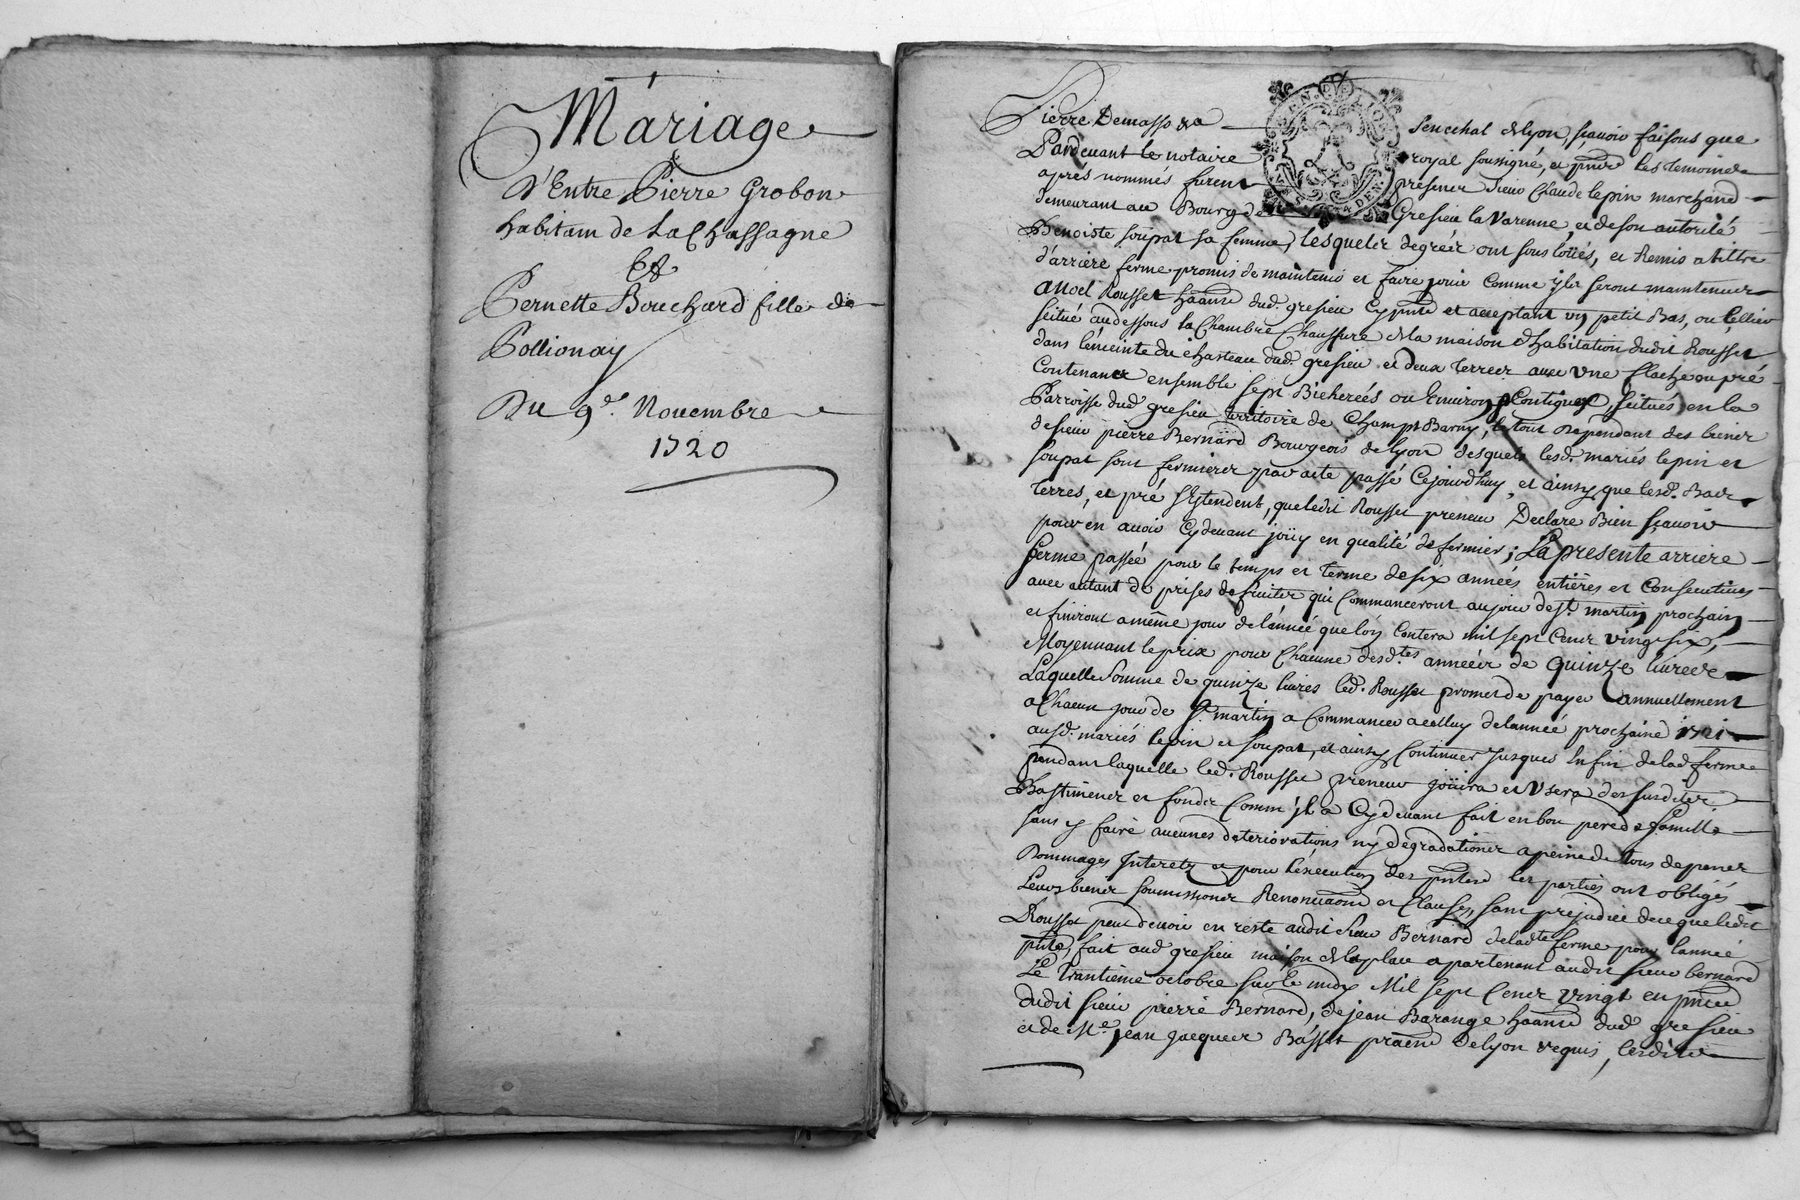 Mariage
D'Entre Pierre Grobon
habitant de LaChassagne
Et
Pernette Bouchard fille de
Pollionay
Du 9e. Novembre
1720
Pierre Demasso &a
senechal de lyon, scavoir faisons que
Pardevant le notaire
royal soussigné, et pnts les temoins
aprés nommés furent
présens sieur Claude lepin marchand
demeurant au Bourg de
Gresieu la Varenne, et de son autorité
Benoiste soupat sa femme, lesquels de gréer ont sous loüés, et Remis a tiltre
d'arriere ferme promis de maintenir et faire joüir comme ils seront maintenus
a Noel Rousset haant dud. gresieu Cy pnt et acceptant un petit Bas, ou cellier
scitué au dessous la Chambre Chaussure de la maison d'habitation dudit Rousset
dans l'enceinte du chasteau dud. gresieu et deux terres avec une Clache ou pré
Contenants ensemble sept Bicherées ou Environ Contigues, scitués en la
Parroisse dud. gresieu territoire de Champt Barny, le tout Dependant des biens
de sieur pierre Bernard Bourgeois de lyon desquels lesd. mariés lepin et
soupat sont fermiers par acte passé Cejourdhuy, et ainsy que lesd. Bas
terres, et pré s'Estendent, que ledit Rousset preneur Declare Bien scavoir
pour en avoir Cydevant joüy en qualité de fermier; La presente arriere
ferme passée pour le temps et terme de six années entières et Consecutives
avec autant de prises de fruits qui Commenceront au jour de St. martin prochain
et finiront a même jour de l'année que lon Contera mil sept Cens vingt six,
Moyennant le prix pour Chacune desd.tes années de quinze livres
Laquelle Somme de quinze livres led. Rousset promet de payer annuellement
a Chacun jour de St. martin a Commancer a celluy de lannée prochaine 1721
ausd. mariés lepin et soupat, et ainsy Continuer jusques En fin de lad. ferme
pendant laquelle led. Rousset preneur joüira et Usera des susdits
Bastimens et fonds Comm'jl a Cydevant fait en bon pere de famille
sans y faire aucunes deteriorations ny degradations a peine de tous depens
Dommages Interets et pour l'éxecution des pntes les parties ont obligés
Leurs biens soumissions Renonciaons et Clauses, sans préjudice de ce que ledit
Rousset peut devoir en reste audit sieur Bernard de ladte ferme pour l'année
pnte, fait aud. gresieu maison de la place apartenant audit sieur bernard
Le Trantiéme octobre sur le midy Mil sept Cens vingt en pnce
dudit sieur pierre Bernard, de jean Barange haant dud. gresieu
et de Me. jean jacques Basset praen de lyon requis, lesdits